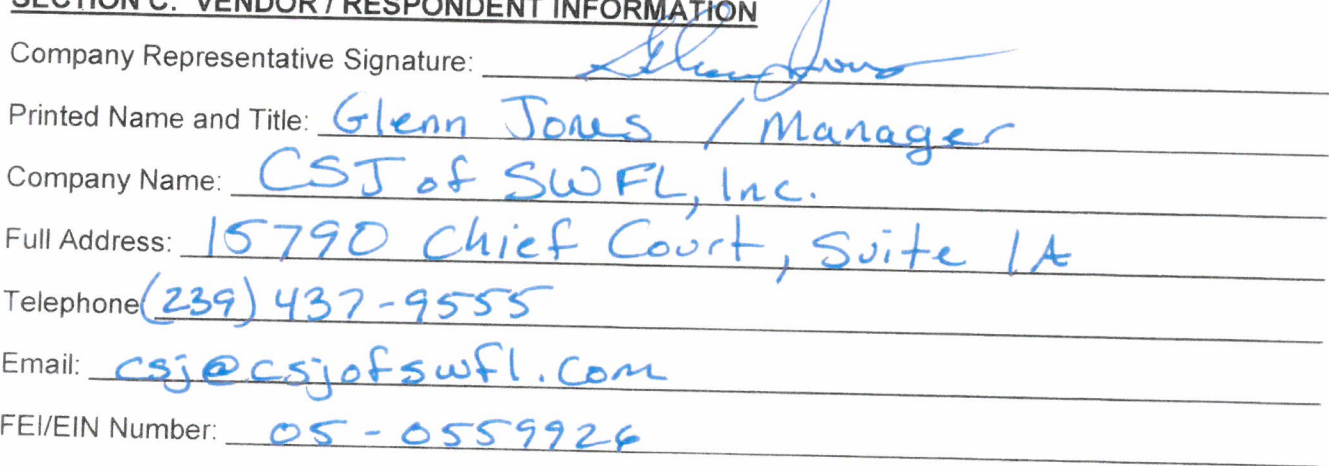 SECTION C: VENDOR / RESPONDENT INFORMATION
Company Representative Signature: Glenn Jones
Printed Name and Title: Glenn Jones / Manager
Company Name: CSJ of SWFL, Inc.
Full Address: 15790 Chief Court, Suite 1A
Telephone (239) 437-9555
Email: csj@csjofswfl.com
FEI/EIN Number: 05-0559926